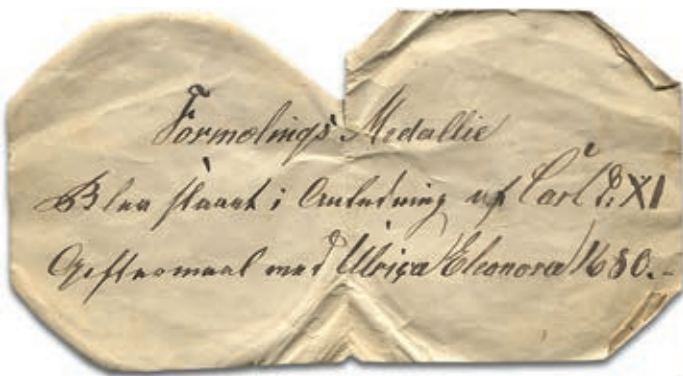 Formælings Medallie
Blev slaaet i Anledning af Carl d: XI
Giftermaal med Ulrica Eleonora 1680.-